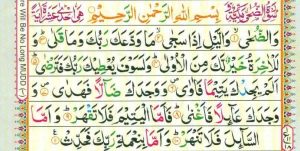 بِسْمِ اللهِ الرَّحْمٰنِ الرَّحِيْمِ
وَالضُّحٰى وَالَّيْلِ اِذَا سَجٰى مَا وَدَّعَكَ رَبُّكَ وَمَا قَلٰى وَ
لَلْاٰخِرَةُ خَيْرٌ لَّكَ مِنَ الْاُوْلٰى وَلَسَوْفَ يُعْطِيْكَ رَبُّكَ فَتَرْضٰى
اَلَمْ يَجِدْكَ يَتِيْمًا فَاٰوٰى وَوَجَدَكَ ضَآلًّا فَهَدٰى وَ
وَجَدَكَ عَآئِلًا فَاَغْنٰى فَاَمَّا الْيَتِيْمَ فَلَا تَقْهَرْ وَاَمَّا
السَّآئِلَ فَلَا تَنْهَرْ وَاَمَّا بِنِعْمَةِ رَبِّكَ فَحَدِّثْ
re Will Be No Long MUDD (~)